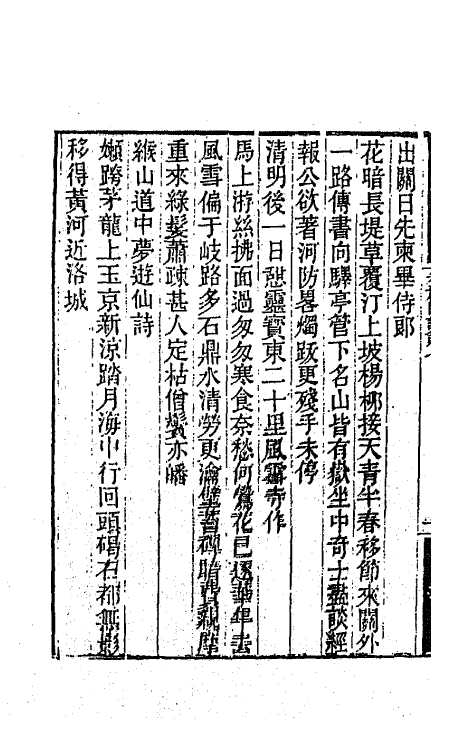 出關日先柬畢侍郎
花暗長堤草覆汀上坡楊栁接天青半春移節來關外
一路傳書向驛亭管下名山皆有嶽坐中奇士盡談經
報公欲著河防畧燭跋更殘手未停
清明後一日憇靈寶東二十里風靈寺作
馬上游絲拂面過匆匆寒食奈愁何鶯花已逐年去
風雪偏于岐路多石鼎水清勞更瀹壁碑暗費親摩
重來綠鬢蕭疎甚人定枯僧鬢亦皤
緱山道中夢遊仙詩
嬾跨茅龍上玉京新涼踏月海中行囘頭碣石都無影
移得黃河近洛城